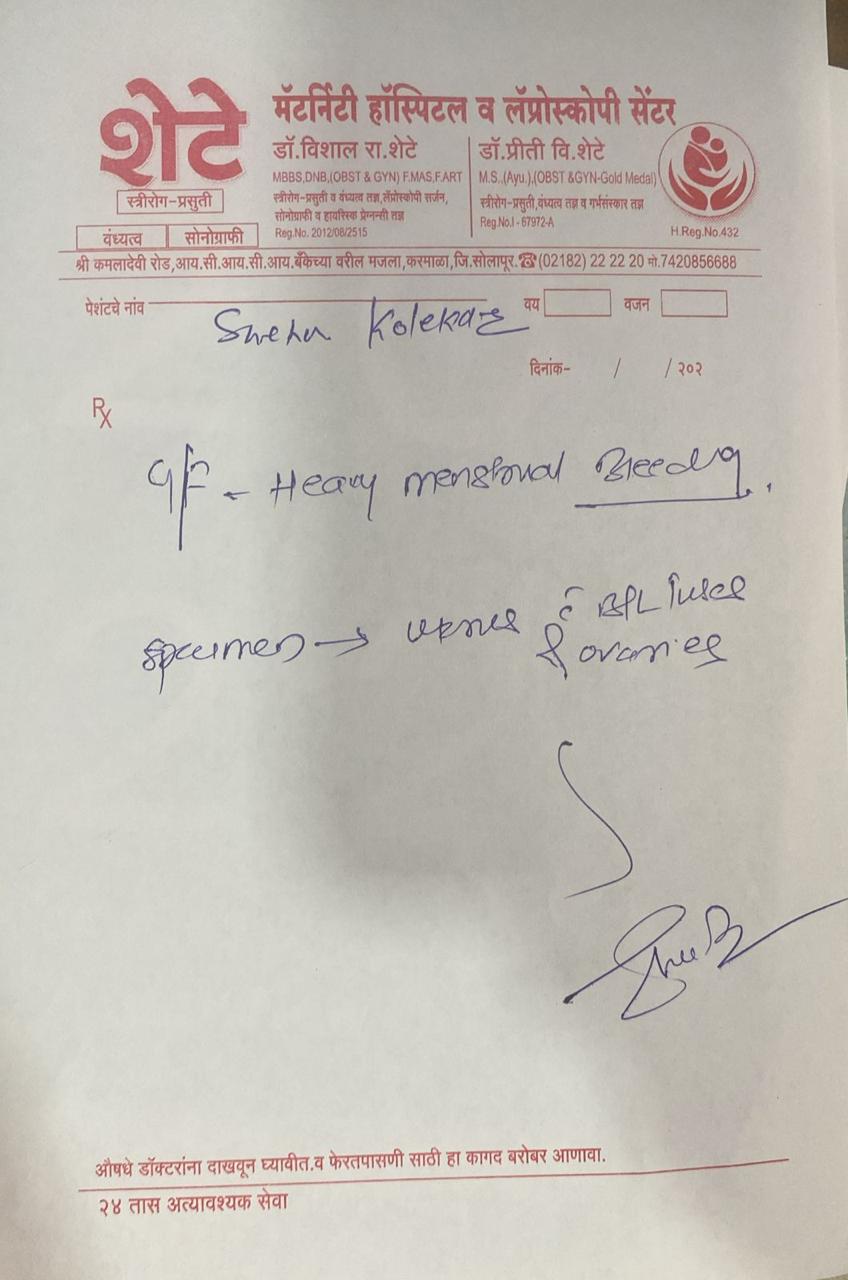 शेटे
स्त्रीरोग-प्रसुती
वंध्यत्व सोनोग्राफी
मॅटर्निटी हॉस्पिटल व लॅप्रोस्कोपी सेंटर
डॉ.विशाल रा.शेटे
MBBS,DNB,(OBST & GYN) F.MAS,F.ART
स्त्रीरोग-प्रसुती व वंध्यत्व तज्ञ,लॅप्रोस्कोपी सर्जन,
सोनोग्राफी व हायरिस्क प्रेग्नन्सी तज्ञ
Reg.No. 2012/08/2515
डॉ.प्रीती वि.शेटे
M.S.,(Ayu.),(OBST &GYN-Gold Medal)
स्त्रीरोग-प्रसुती,वंध्यत्व तज्ञ व गर्भसंस्कार तज्ञ
Reg.No.I - 67972-A
H.Reg.No.432
श्री कमलादेवी रोड,आय.सी.आय.सी.आय.बँकेच्या वरील मजला,करमाळा,जि.सोलापूर.☎(02182) 22 22 20 मो.7420856688
पेशंटचे नांव वय वजन
Kolekar
दिनांक- / / २०२
Rx
- Heavy menstrual Bleeding.
specimen → uterus c̄ B/L Tubes
& ovaries
औषधे डॉक्टरांना दाखवून घ्यावीत.व फेरतपासणी साठी हा कागद बरोबर आणावा.
२४ तास अत्यावश्यक सेवा